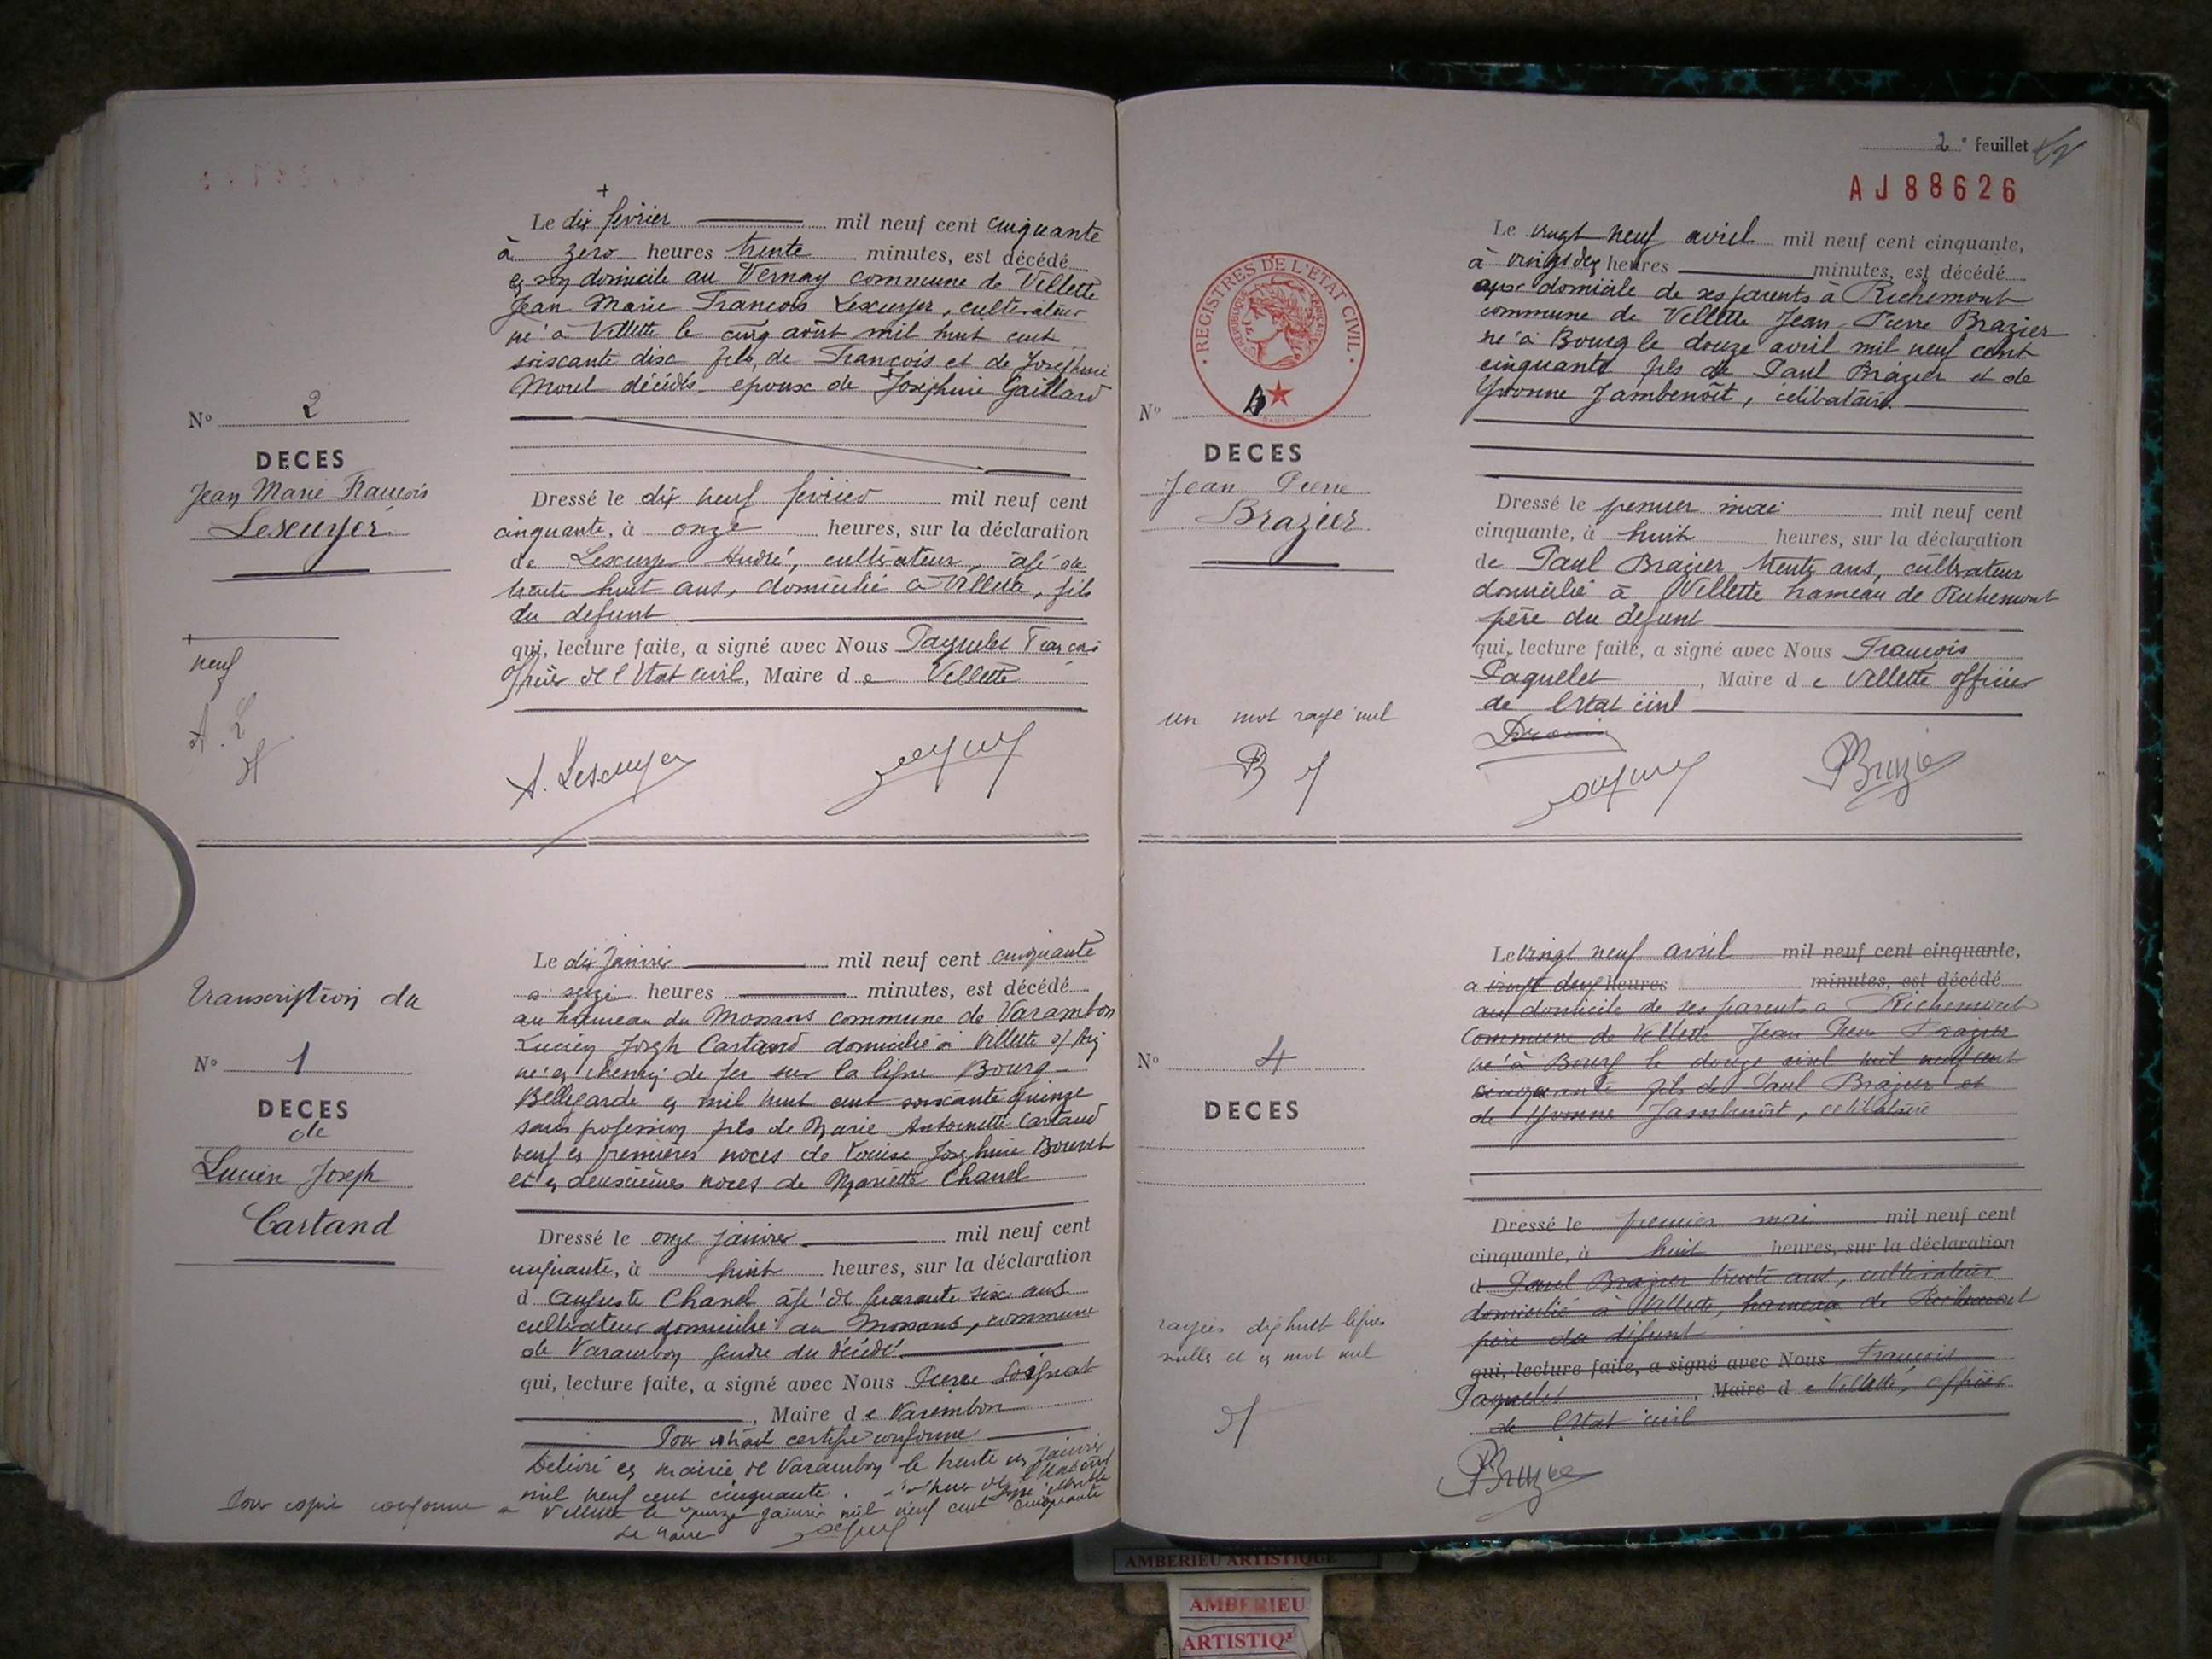 +
Le dix février mil neuf cent cinquante
à zéro heures trente minutes, est décédé
en son domicile au Vernay commune de Villette
Jean Marie François Lescuyer, cultivateur
né à Villette le cinq août mil huit cent
soixante dix fils de François et de Joséphine
Morel décédés époux de Joséphine Gaillard
N° 2
DECES
Jean Marie François
Lescuyer
Dressé le dix neuf février mil neuf cent
cinquante, à onze heures, sur la déclaration
de Lescuyer André, cultivateur, âgé de
trente huit ans, domicilié à Villette, fils
du defunt
qui, lecture faite, a signé avec Nous Paquelet François
officier de l'Etat civil, Maire de Villette
+
neuf
A. L
A. Lescuyer
Le dix janvier mil neuf cent cinquante
à seize heures minutes, est décédé
au hameau du Mossans commune de Varambon
Lucien Joseph Cartand domicilié à Villette s/ Ain
né en chemin de fer sur la ligne Bourg-
Bellegarde en mil huit cent soixante quinze
sans profession fils de Marie Antoinette Cartand
veuf en premières noces de Louise Joséphine Bouvet
et en deuxièmes noces de Mariette Chanel
transcription du
N° 1
DECES
de
Lucien Joseph
Cartand
Dressé le onze janvier mil neuf cent
cinquante, à huit heures, sur la déclaration
d Auguste Chanel âgé de quarante six ans
cultivateur domicilié au Mossans, commune
de Varambon gendre du décédé
qui, lecture faite, a signé avec Nous Pierre Soignat
, Maire de Varambon
Pour extrait certifié conforme
Délivré en mairie de Varambon le trente un janvier
mil neuf cent cinquante.
Pour copie conforme
Villette le quinze janvier mil neuf cent cinquante
Le Maire
2e feuillet
AJ88626
Le vingt neuf avril mil neuf cent cinquante,
à vingt deux heures minutes, est décédé
aux domicile de ses parents à Richemont
commune de Villette Jean Pierre Brazier
né à Bourg le douze avril mil neuf cent
cinquante fils de Paul Brazier et de
Yvonne Jambenoît, célibataire
REGISTRES DE L'ETAT CIVIL
N°
DECES
Jean Pierre
Brazier
Dressé le premier mai mil neuf cent
cinquante, à huit heures, sur la déclaration
de Paul Brazier trente ans, cultivateur
domicilié à Villette hameau de Richemont
père du défunt
qui, lecture faite, a signé avec Nous François
Paquelet, Maire de Villette officier
de l'Etat civil
un mot rayé nul
PBrazier
Le vingt neuf avril mil neuf cent cinquante,
à vingt deux heures minutes, est décédé
au domicile de ses parents à Richemont
Commune de Villette Jean Pierre Brazier
né à Bourg le douze avril mil neuf cent
cinquante fils de Paul Brazier et
de Yvonne Jambenoît, célibataire
N° 4
DECES
Dressé le premier mai mil neuf cent
cinquante, à huit heures, sur la déclaration
d Paul Brazier trente ans, cultivateur
domicilié à Villette, hameau de Richemont
père du défunt
qui, lecture faite, a signé avec Nous François
Paquelet, Maire de Villette, officier
de l'Etat civil
rayées dix huit lignes
nulles et un mot nul
PBrazier
AMBERIEU ARTISTIQUE
AMBERIEU
ARTISTIQ